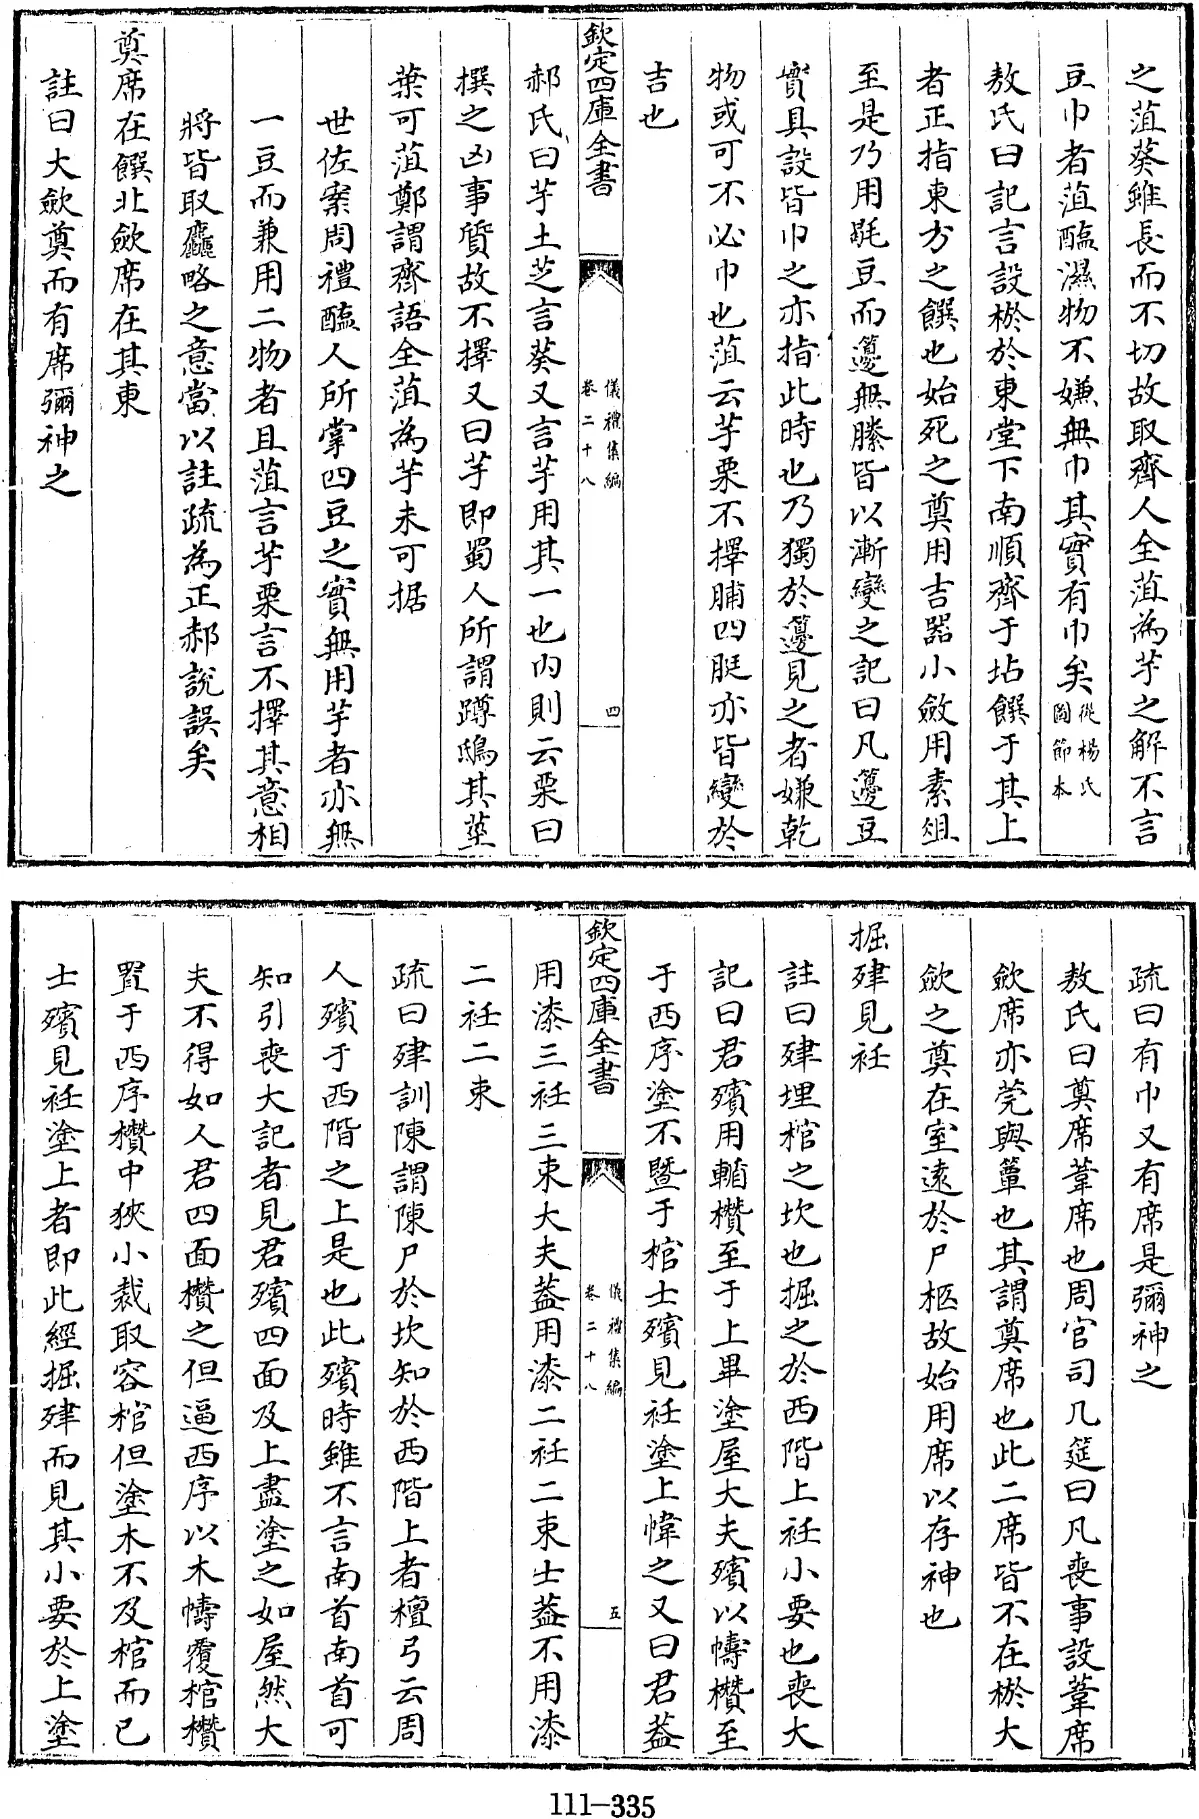 之菹葵雖長而不切故取齊人全菹為芋之解不言
豆巾者菹醢濕物不嫌無巾其實有巾矣從楊氏圖節本
敖氏曰記言設棜於東堂下南順齊于坫饌于其上
者正指東方之饌也始死之奠用吉器小斂用素俎
至是乃用毼豆而籩無縢皆以漸變之記曰凡籩豆
實具設皆巾之亦指此時也乃獨於籩見之者嫌乾
物或可不必巾也菹云芋栗不擇脯四脡亦皆變於
吉也
欽定四庫全書
儀禮集編
卷二十八
四
郝氏曰芋土芝言葵又言芋用其一也内則云栗曰
撰之凶事質故不擇又曰芋即蜀人所謂蹲鴟其莖
葉可菹鄭謂齊語全菹為芋未可据
世佐案周禮醢人所掌四豆之實無用芋者亦無
一豆而兼用二物者且菹言芋栗言不擇其意相
將皆取麤略之意當以註疏為正郝說誤矣
奠席在饌北斂席在其東
註曰大斂奠而有席彌神之
疏曰有巾又有席是彌神之
敖氏曰奠席葦席也周官司几筵曰凡喪事設葦席
斂席亦莞與簟也其謂奠席也此二席皆不在棜大
斂之奠在室遠於尸柩故始用席以存神也
掘肂見衽
註曰肂埋棺之坎也掘之於西階上衽小要也喪大
記曰君殯用輴欑至于上畢塗屋大夫殯以幬欑至
于西序塗不暨于棺士殯見衽塗上幃之又曰君葢
欽定四庫全書
儀禮集編
卷二十八
五
用漆三衽三束大夫葢用漆二衽二束士葢不用漆
二衽二束
疏曰肂訓陳謂陳尸於坎知於西階上者檀弓云周
人殯于西階之上是也此殯時雖不言南首南首可
知引喪大記者見君殯四面及上盡塗之如屋然大
夫不得如人君四面欑之但逼西序以木幬覆棺欑
置于西序欑中狹小裁取容棺但塗木不及棺而已
士殯見衽塗上者即此經掘肂而見其小要於上塗
111-335